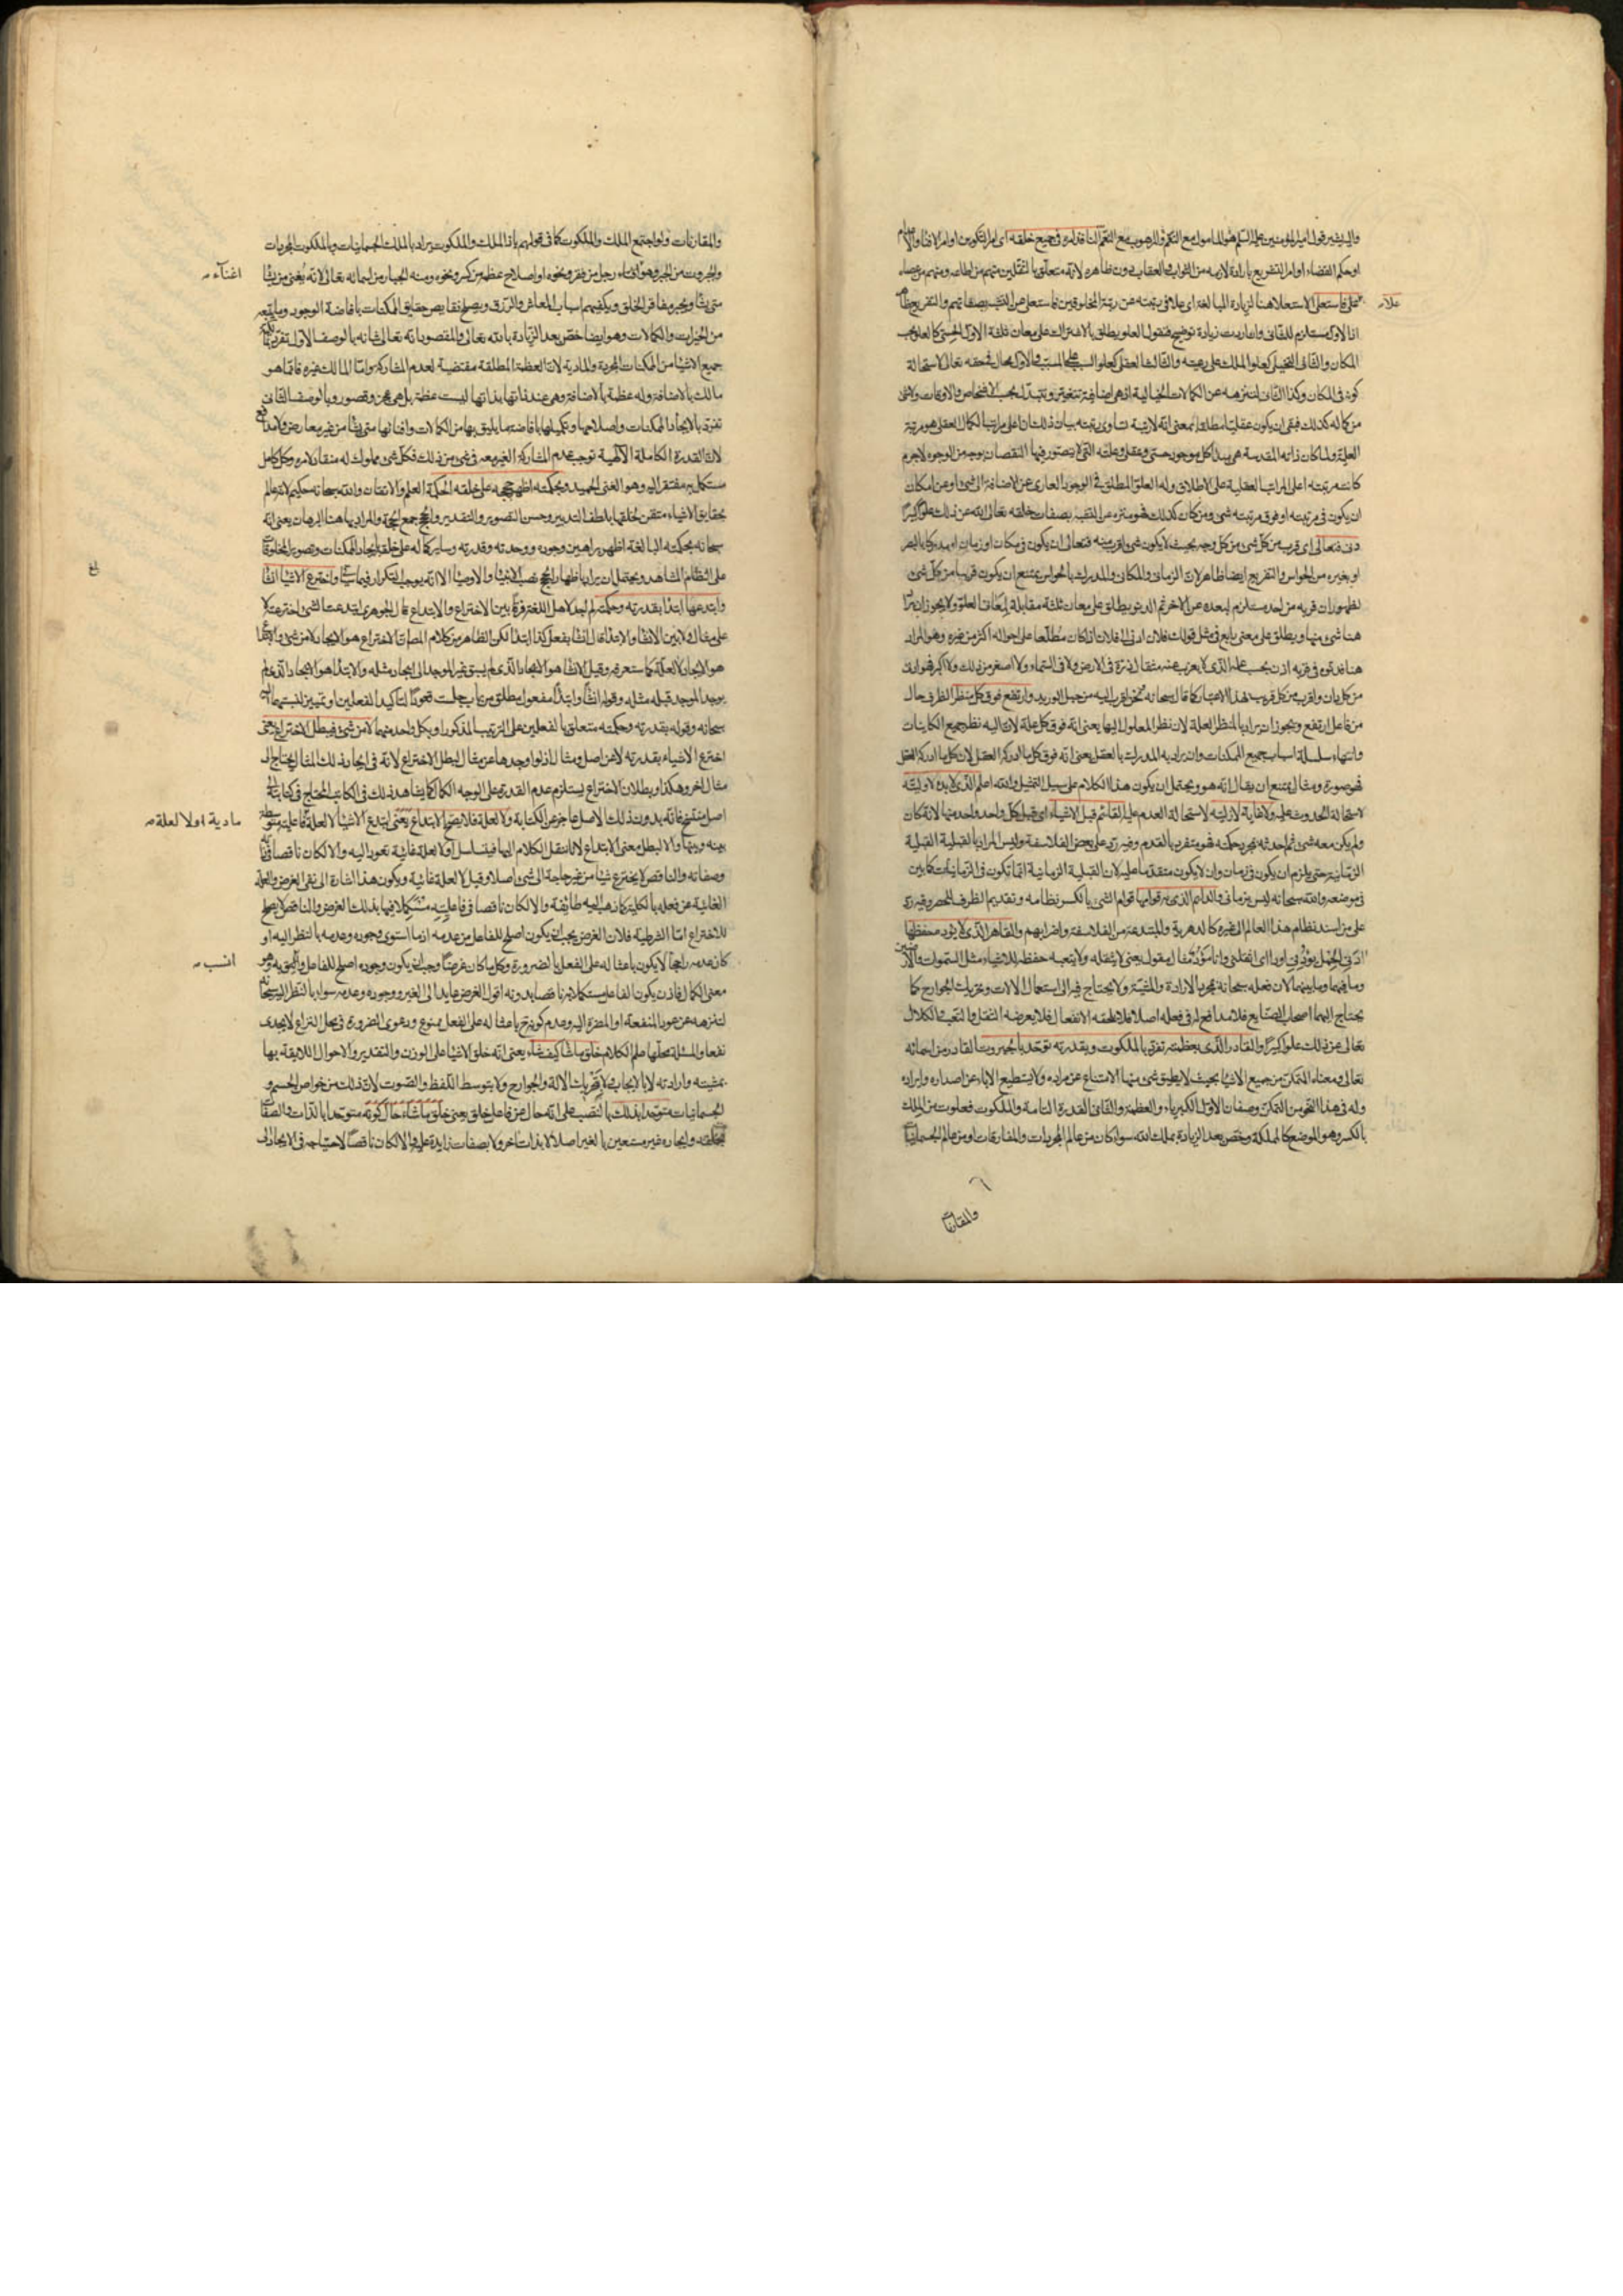 واليه يشير قول امير المؤمنين عليه السلم هو المامول مع النقم والمرهوب مع النعم النافذ امره في جميع خلقه اى امر التكوين او امر الافناء والاعدام
علا فاستعلى الاستعلاء هنا لزيادة المبالغة اى علا في رتبته عن رتبة المخلوقين فاستعلى عن التشبه بصفاتهم والتفريع ظاهر
علا
لان الاول مستلزم للثاني وان اردت زيادة توضيح فنقول العلو يطلق بالاشتراك على معان ثلثة الاول الحسى كالعلو بحسب
المكان والثاني التخيلى كعلو الملك على رعيته والثالث العقلى كعلو السبب على المسبب والاول محال في حقه تعالى لاستحالة
كونه في المكان وكذا الثاني لتنزهه عن الكمالات الخيالية اذ هى اضافية تتغير وتتبدل بحسب الاشخاص والاوقات ولا شئ
من كماله كذلك فبقى ان يكون عقليا مطلقا بمعنى انه لا رتبة تساوى رتبته بيان ذلك ان اعلى مراتب الكمال العقلى هو مرتبة
العلية ولما كان ذاته المقدسة هى مبدأ كل موجود حسى وعقلى وعلته التى لا يتصور فيها النقصان بوجه من الوجوه لا جرم
كانت مرتبته اعلى المراتب العقلية على الاطلاق وله العلو المطلق في الوجود العارى عن الاضافة الى شئ وعن امكان
ان يكون في مرتبته او فوق مرتبته شئ ومن كان كذلك فهو منزه عن التشبه بصفات خلقه تعالى الله عن ذلك علوا كبيرا
دنى فتعالى اى قرب من كل شئ من كل وجه بحيث لا يكون شئ اقرب منه فتعالى ان يكون في مكان او زمان او مدركا بالبصر
او بغيره من الحواس والتفريع ايضا ظاهر لان الزمانى والمكانى والمدرك بالحواس يمتنع ان يكون قريبا من كل شئ
لظهور ان قربه من احد مستلزم لبعده عن الاخر ثم الدنو يطلق على معان ثلثة مقابلة لمعانى العلو ولا يجوز ان يراد
هنا شئ منها ويطلق على معنى رابع في مثل قولك فلان ادنى الى فلان اذا كان مطلعا على احواله اكثر من غيره وهو المراد
هنا فدنوه وقربه اذن بحسب علمه الذى لا يعزب عنه مثقال ذرة في الارض ولا في السماء ولا اصغر من ذلك ولا اكبر فهو ادنى
من كل دان واقرب من كل قريب بهذا الاعتبار كما قال سبحانه نحن اقرب اليه من حبل الوريد وارتفع فوق كل منظر الظرف حال
من فاعل ارتفع ويجوز ان يراد بالمنظر العلة لان نظر المعلول اليها يعنى انه فوق كل علة لان اليه نظر جميع الكاينات
وانتهاء سلسلة اسباب جميع الممكنات وان يراد به المدرك بالعقل يعنى انه فوق كل ما ادركه العقل لان كل ما ادركه العقل
فهو صورة ومثال يمتنع ان يقال انه هو ويحتمل ان يكون هذا الكلام على سبيل التمثيل والله اعلم الذى لا بدء لاوليته
لاستحالة الحدوث عليه ولا غاية لازليته لاستحالة العدم عليه القائم قبل الاشياء اى قبل كل واحد واحد منها لانه كان
ولم يكن معه شئ ثم احدثه بمجرد حكمته فهو متفرد بالقدم وفيه رد على بعض الفلاسفة وليس المراد بالقبلية القبلية
الزمانية حتى يلزم ان يكون في زمان وان لا يكون متقدما عليه لان القبلية الزمانية انما تكون في الزمانيات كما بين
في موضعه والله سبحانه ليس بزمانى والدائم الذى به قوامها قوام الشئ بالكسر نظامه وتقديم الظرف للحصر وفيه رد
على من اسند نظام هذا العالم الى غيره كالدهرية والمبتدعة من الفلاسفة واضرابهم والقاهر الذى لا يؤده حفظها
ادنى الحمل يؤدنى اودا اى اثقلنى وانا مؤد مثال مقول يعنى لا يثقله ولا يتعبه حفظه للاشياء مثل السموات والارضين
وما فيهما وما بينهما لان فعله سبحانه بمجرد الارادة والمشية ولا يحتاج فيه الى استعمال الالات وتحريك الجوارح كما
يحتاج اليهما اصحاب الصنايع فلا مدافع له في فعله اصلا فلا يلحقه الانفعال فلا يعرضه الثقل والتعب والكلال
تعالى عن ذلك علوا كبيرا والقادر الذى بعظمته تفرد بالملكوت وبقدرته توحد بالجبروت القادر من اسمائه
تعالى ومعناه المتمكن من جميع الاشياء بحيث لا يطيق شئ منها الامتناع عن مراده ولا يستطيع الاباء عن اصداره وايراده
وله في هذا النحو من التمكن وصفان الاول الكبرياء والعظمة والثانى القدرة التامة والملكوت فعلوت من الملك
بالكسر وهو الموضع كالمملكة وخص بعد الزيادة بملك الله سواء كان من عالم المجردات والمفارقات او من عالم الجسمانيات
والمقارنات
والمقارنات ولو اجتمع الملك والملكوت كما في قولهم يا ذا الملك والملكوت يراد بالملك الجسمانيات وبالملكوت المجردات
والجبروت من الجبر وهو اغناء رجل من فقر ونحوه او اصلاح عظم من كسر ونحوه ومنه الجبار من اسمائه تعالى لانه يغنى من يشاء
اغناء
متى يشاء ويجبر مفاقر الخلق ويكفيهم اسباب المعاش والرزق ويصلح نقايص حقايق الممكنات بافاضة الوجود وما يتبعه
من الخيرات والكمالات وهو ايضا خص بعد الزيادة بالله تعالى والمقصود انه تعالى شانه بالوصف الاول تفرد بمالكية
جميع الاشياء من الممكنات المجردة والمادية لان العظمة المطلقة مقتضية لعدم المشاركة واما المالك غيره فانما هو
مالك بالاضافة وله عظمة بالاضافة وهى عند ذاتها بذاتها ليست عظمة بل هى عجز وقصور وبالوصف الثانى
تفرد بالايجاد الممكنات واصلاحها وتكميلها بافاضة ما يليق بها من الكمالات وافنائها متى يشاء من غير معارض ولا مدافع
لان القدرة الكاملة الالهية توجب عدم المشاركة الغير معه في شئ من ذلك فكل شئ مملوك له منقاد لامره وكل كامل
مستكمل به مفتقر اليه وهو الغنى الحميد وبحكمته اظهر حججه على خلقه الحكمة العلم والاتقان والله سبحانه حكيم لانه عالم
بحقايق الاشياء متقن لخلقها بلطف التدبير وحسن التصوير والتقدير والحجج جمع الحجة والمراد بها هنا البرهان يعنى انه
سبحانه بحكمته البالغة اظهر براهين وجوده ووحدته وقدرته وساير كماله على خلقه بايجاد الممكنات وتصوير المخلوقات
على النظام المشاهد ويحتمل ان يراد باظهار الحجج نصب الانبياء والاوصياء الا انه يوجب التكرار فيما سيأتى واخترع الاشياء انشاء
وابتدعها ابتداء بقدرته وحكمته لم اجد لاهل اللغة فرقا بين الاختراع والابتداع قال الجوهرى ابتدعت الشئ اخترعته لا
على مثال ولا بين الانشاء والابتداء قال انشأ يفعل كذا ابتدأ لكن الظاهر من كلام المص ان الاختراع هو الايجاد لا من شئ والابتداع
هو الايجاد لا لعلة كما ستعرفه وقيل الانشاء هو الايجاد الذى لم يسبق غير الموجد الى ايجاد مثله والابتداء هو الايجاد الذى لم
يوجد الموجد قبله مثله وقوله انشاء وابتداء مفعول مطلق من باب جلست قعودا لتأكيد الفعلين او تمييز لنسبتهما اليه
سبحانه وقوله بقدرته وحكمته متعلق بالفعلين على الترتيب المذكور او بكل واحد منهما لا من شئ فيبطل الاختراع يعنى
اخترع الاشياء بقدرته لا عن اصل ومثال اذ لو اوجدها عن مثال لبطل الاختراع لانه في ايجاد ذلك المثال يحتاج الى
مثال اخر وهكذا وبطلان الاختراع يستلزم عدم القدرة على الوجه الكمال كما يشاهد ذلك في الكاتب المحتاج في كتابته الى
اصل منتسخ فانه بدون ذلك الاصل عاجز عن الكتابة ولا لعلة فلا يصح الابتداع يعنى ابتدع الاشياء لا لعلة فاعلية متوسطة
مادية او لا لعلة
بينه وبينها والا لبطل معنى الابتداع لانا ننقل الكلام اليها فيتسلسل او لا لعلة غائية تعود اليه والا لكان ناقصا في ذاته
وصفاته والناقص لا يخترع شيئا من غير حاجة الى شئ اصلا وقيل لا لعلة غائية ويكون هذا اشارة الى نفى الغرض والعلة
الغائية عن فعله بالكلية كما ذهب اليه طائفة والا لكان ناقصا في فاعليته مستكملا فيها بذلك الغرض والناقص لا يصلح
للاختراع اما الشرطية فلان الغرض يجب ان يكون اصلح للفاعل من عدمه اذ ما استوى وجوده وعدمه بالنظر اليه او
كان عدمه راجحا لا يكون باعثا له على الفعل بالضرورة وكل ما كان غرضا وجب ان يكون وجوده اصلح للفاعل واليق به وهو
انسب
معنى الكمال فاذن يكون الفاعل مستكملا به ناقصا بدونه اقول الغرض عايد الى الغير ووجوده وعدمه سواء بالنظر اليه سبحانه
لتنزهه عن عود المنفعة او المضرة اليه وعدم كونه ح باعثا له على الفعل ممنوع ودعوى الضرورة في محل النزاع لا يجدى
نفعا والمسئلة محلها علم الكلام خلق ما شاء كيف شاء يعنى انه خلق الاشياء على الوزن والتقدير والاحوال اللايقة بها
بمشيته وارادته لا بالايجاب ولا بتحريك الالة والجوارح ولا بتوسط اللفظ والصوت لان ذلك من خواص الجسم و
الجسمانيات متوحدا بذلك بالنصب على انه حال عن فاعل خلق يعنى خلق ما شاء حال كونه متوحدا بالذات والصفات
بخلقه وايجاده غير مستعين بالغير اصلا لا بذات اخر ولا بصفات زايدة عليه والا لكان ناقصا لاحتياجه في الايجاد الى